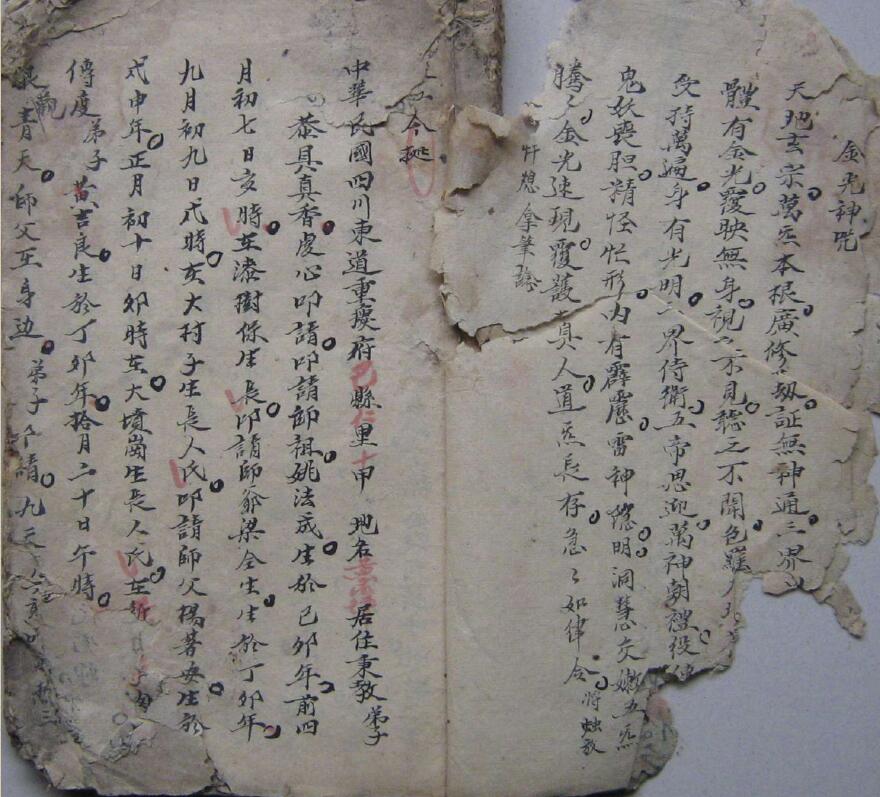 金光神咒
天地玄宗萬炁本根廣修萬劫証無神通三界
體有金光覆映無身視之不見聽之不聞色羅
受持萬遍身有光明三界侍衛五帝思迎萬神朝禮役使
鬼妖喪胆精怪忙形內有霹靂雷神隱明洞慧交嫩五炁
騰々金光速現覆護真人道炁長存急々如律令將蛐放
拿筆
今據
中華民國四川東道重慶府巴縣仁里十甲地名居住秉教弟子
恭具真香虔心叩請叩請師祖姚法成生於己卯年前四
月初七日亥時在漆樹保生長叩請師爺梁全生生於丁卯年
九月初九日戌時在大村子生長人氏叩請師父楊著安生於
戊申年正月初十日卯時在大墳崗生長人氏在
傳度弟子黃吉良生於丁卯年拾月二十日午時
青天師父在身边弟子叩請九天